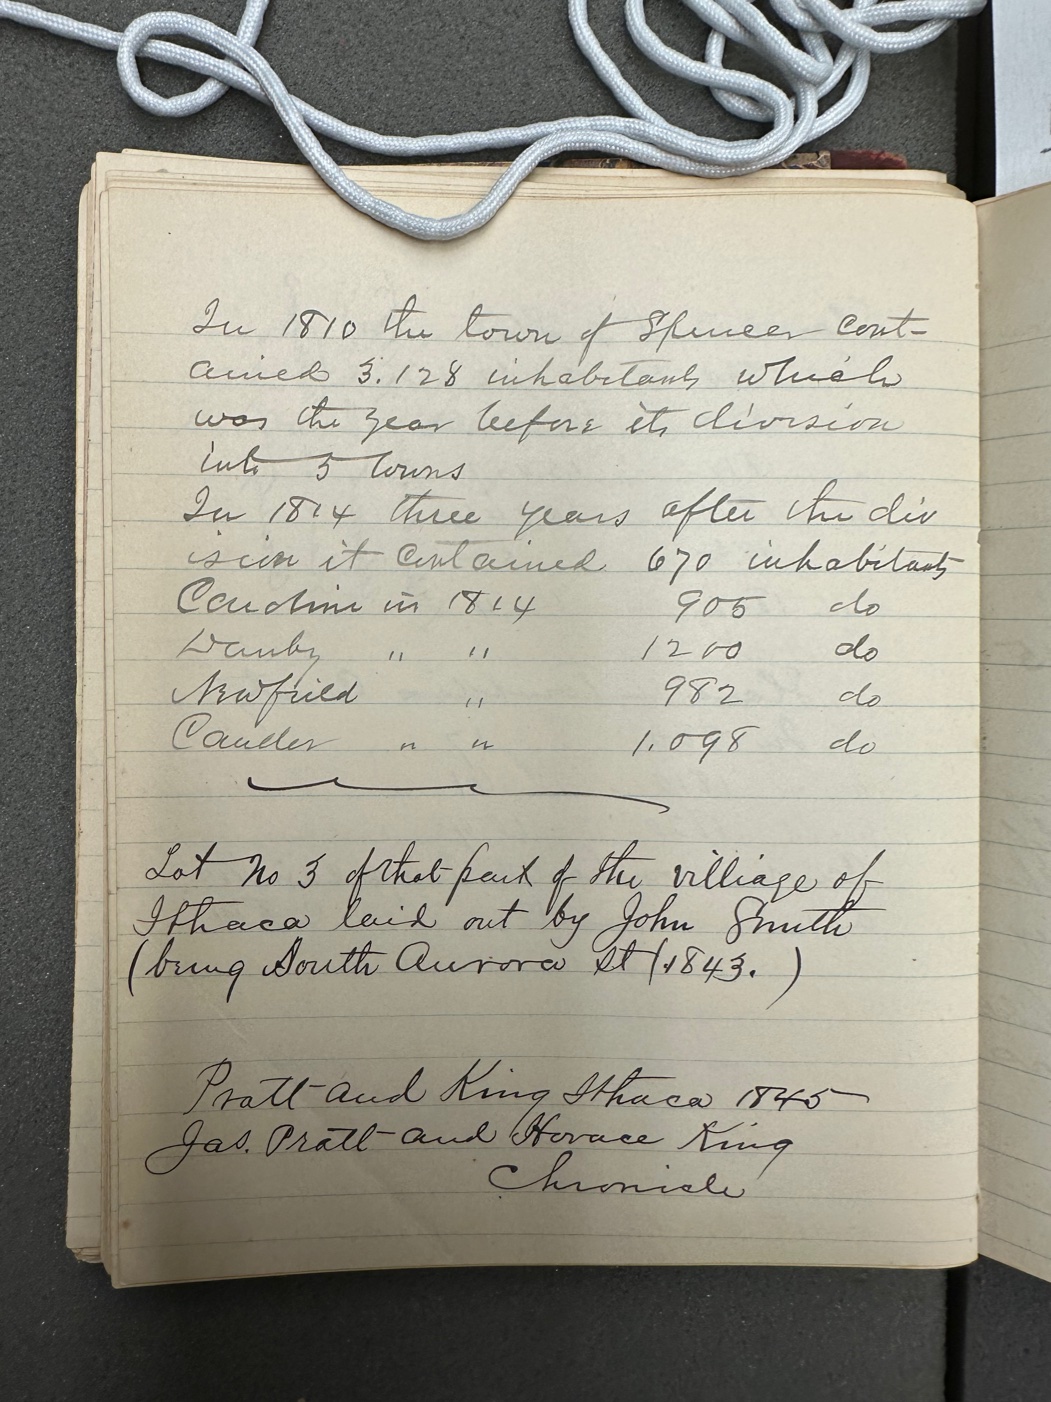 In 1810 the town of Spencer cont-
ained 3.128 inhabitants which
was the year before its division
into 5 towns
In 1814 three years after the div
ision it contained 670 inhabitants
Caroline in 1814 905 do
Danby " " 1200 do
Newfield " 982 do
Candor " " 1.098 do
Lot No 3 of that part of the villiage of
Ithaca laid out by John Smith
(being South Aurora St (1843. )
Pratt and King Ithaca 1845
Jas. Pratt and Horace King
Chronicle